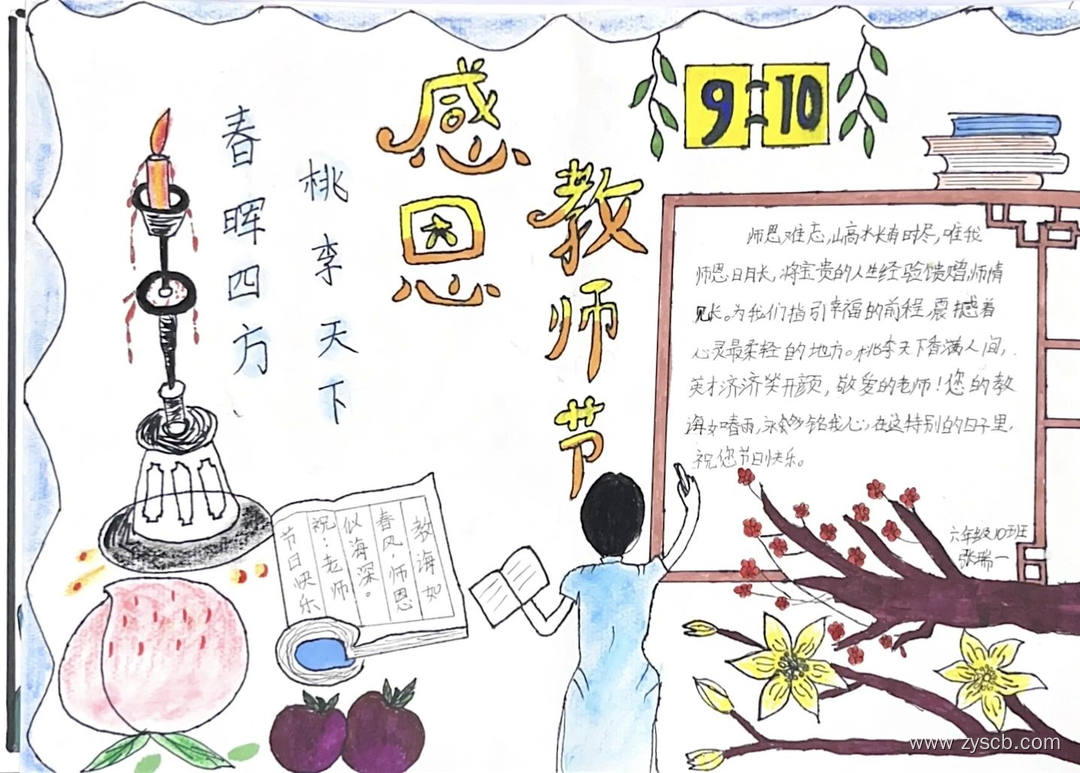 感恩
教师节
9:10
春晖四方
桃李天下
师恩难忘,山高水长有时尽,唯我
师恩日月长,将宝贵的人生经验馈赠,师情
见长。为我们指引幸福的前程震撼着
心灵最柔轻的地方。桃李天下香满人间,
英才济济笑开颜,敬爱的老师!您的教
海如春雨,永铭我心,在这特别的日子里,
祝您节日快乐。
六年级10班
张瑞一
教海如
春风,师恩
似海深。
祝:老师
节日快乐
www.zyscb.com